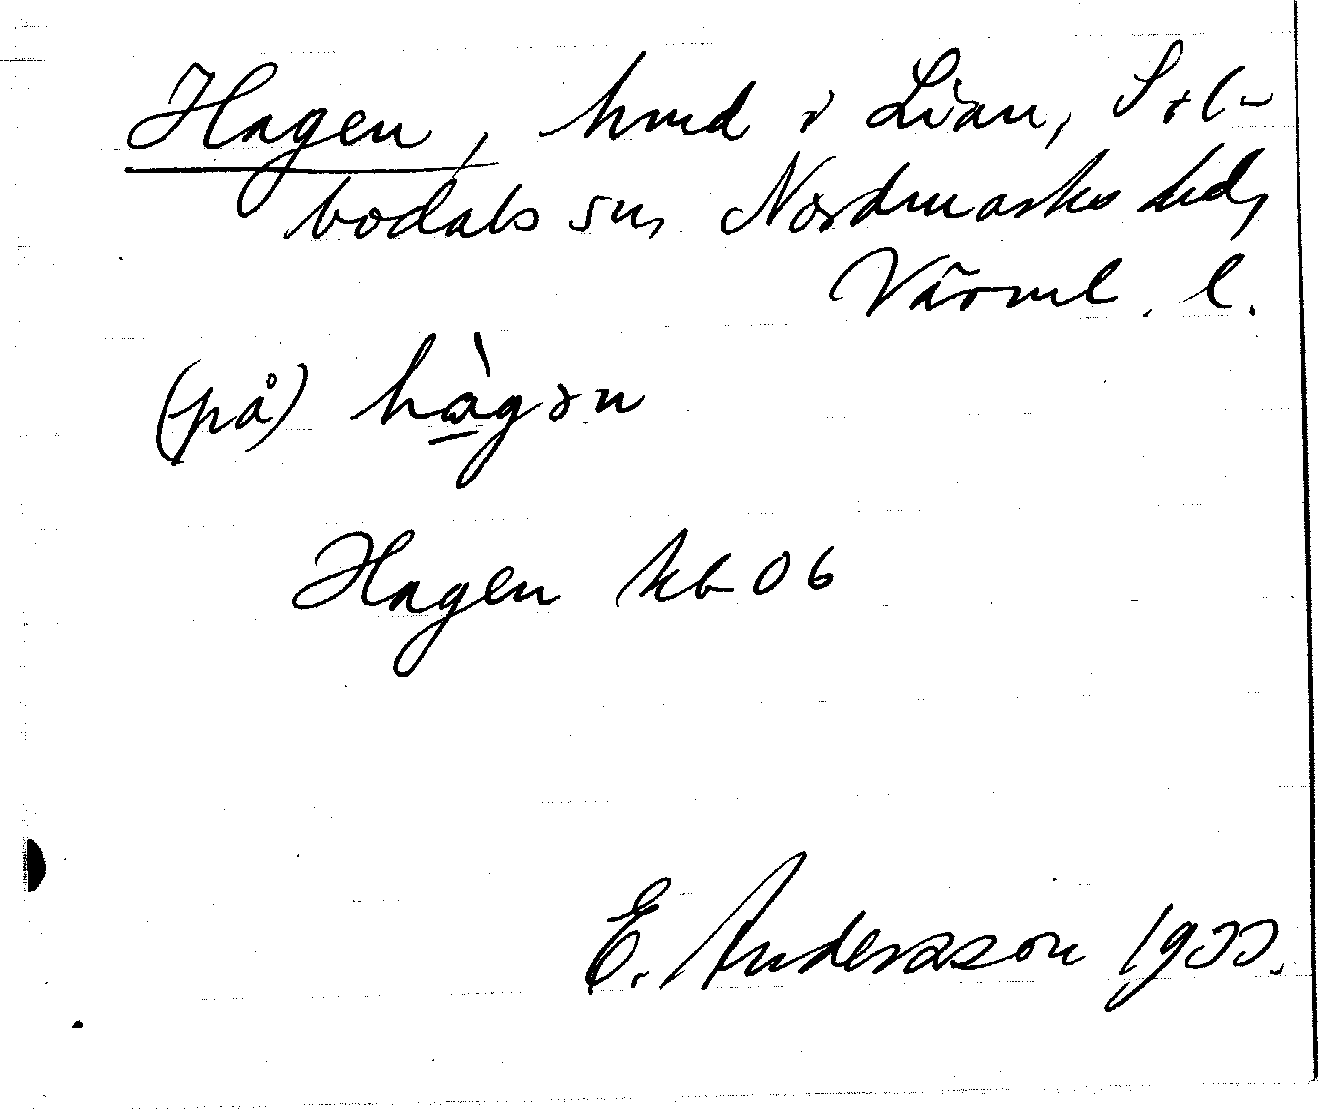 Hagen, hmd i Lian, Sil-
bodals sn, Nordmarks hd,
Värml. l.
(på) hàgən
Hagen kb 06
E. Andersson 1933.